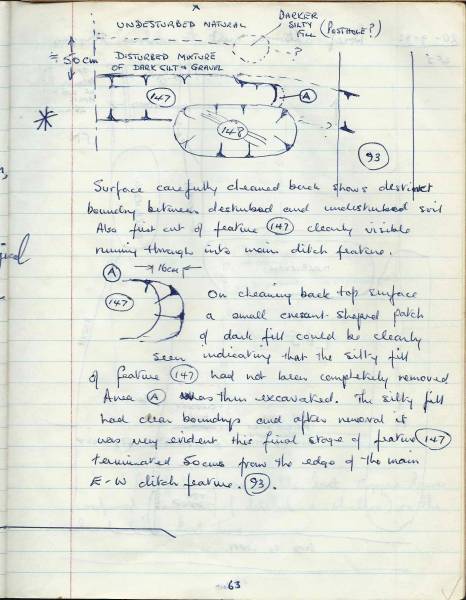 UNDISTURBED NATURAL
DARKER
SILTY
FILL (POSTHOLE?)
?
≈ 50cm
DISTURBED MIXTURE
OF DARK SILT + GRAVEL
147
A
148
?
93
Surface carefully cleaned back shows distinct
boundry between disturbed and undisturbed soil
Also first cut of feature 147 clearly visible
running through into main ditch feature.
A
16cm
147
On cleaning back top surface
a small cresant shaped patch
of dark fill could be clearly
seen indicating that the silty fill
of feature 147 had not been completely removed
Area A was then excavated. The silty fill
had clear boundrys and after removal it
was very evident this final stage of feature 147
terminated 50cms from the edge of the main
E-W ditch feature. 93.
63